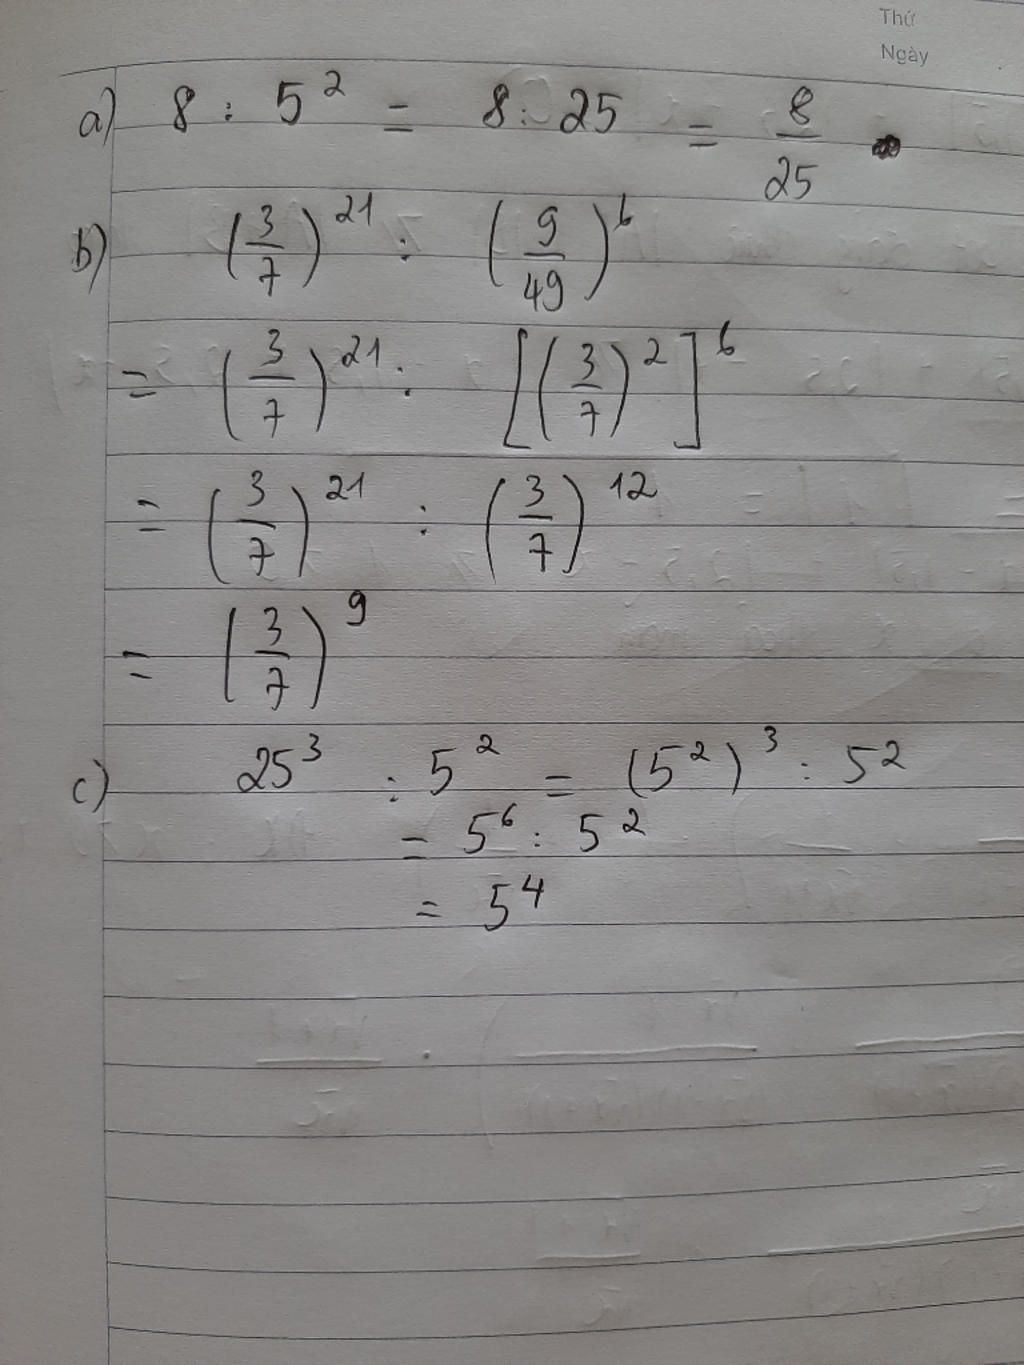 Thứ
Ngày
a) 8 : 5² = 8 : 25 = 8/25 .
b) (3/7)²¹ : (9/49)⁶
= (3/7)²¹ : [(3/7)²]⁶
= (3/7)²¹ : (3/7)¹²
= (3/7)⁹
c) 25³ : 5² = (5²)³ : 5²
= 5⁶ : 5²
= 5⁴